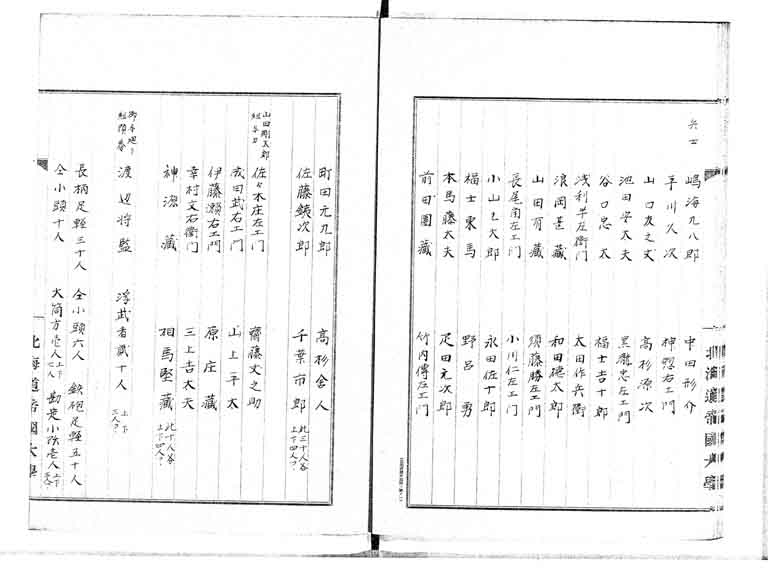 兵士
嶋海九八郎 中田形介
平川久次 神惣右エ門
山口友之丈 高杉源次
池田安太夫 黒瀧忠左エ門
谷口忠太 福士吉十郎
浅利羊左衛門 太田作兵衛
浪岡甚藏 和田徳太郎
山田有藏 須藤勝左エ門
長尾角左エ門 小川仁左エ門
小山太郎 永田佐十郎
福士東馬 野呂勇
本馬藤太夫 疋田元次郎
前田園藏 竹内傳左エ門
北海道帝國大學
町田元九郎 高杉舎人
佐藤銕次郎 千葉市郎 此三十人各上下四人?
山田剛太郎
組
佐々木庄左エ門 齋藤文之助
成田武右エ門 山上平太
伊藤瀬右エ門 原庄藏
幸村文右衛門 三上吉太夫
神源藏 相馬堅藏 此十人各上下四人?
渡辺将監 浮武者貳十人 上下二人?
長柄足軽三十人 仝小頭六人 鉄砲足軽五十人
仝小頭十人 大筒方壱人 上下 人 勘定小役壱人 上下
北海道帝國大學